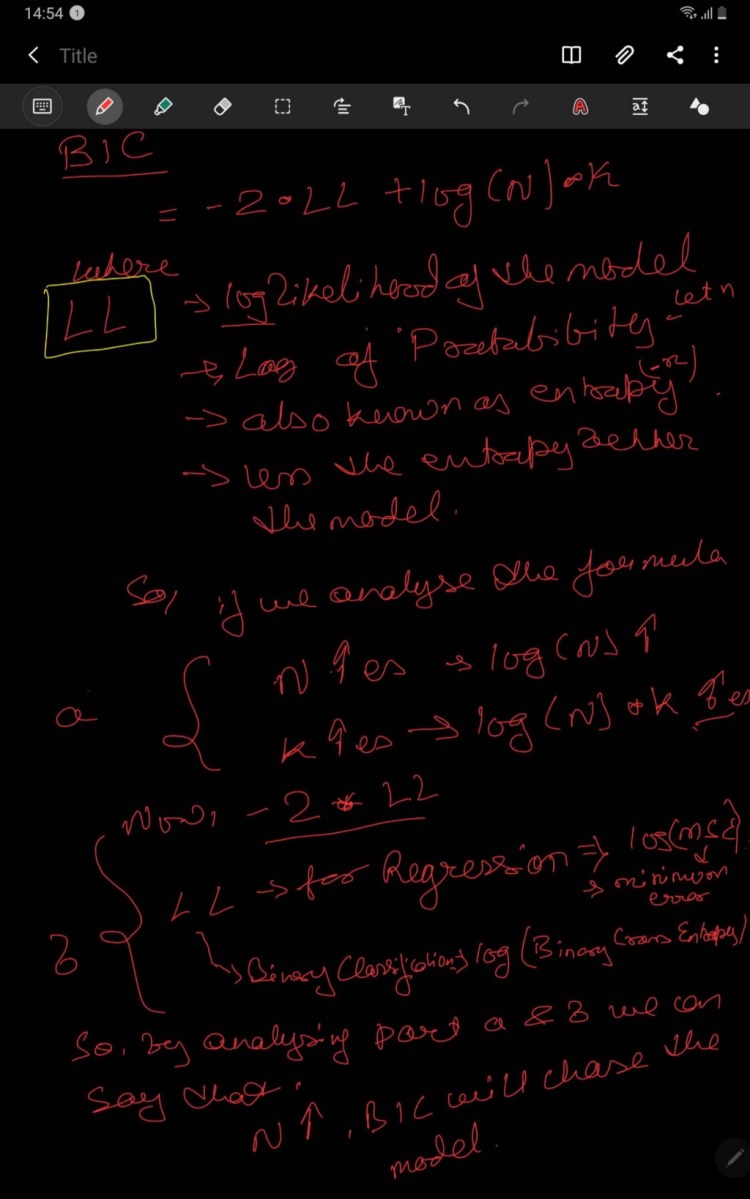 14:54 1
Title
BIC
= -2*LL + log(N)*K
where
LL → log likelihood of the model
→ Log of Probability - let n
→ also known as entropy (-n).
→ less the entropy better
the model.
So, if we analyse the formula
a { N ↑es → log(N) ↑
K ↑es → log(N)*K ↑es
Now, -2*LL
b { LL → for Regression ⇒ log(MSE)
→ minimum
error
→ Binary Classification → log (Binary Cross Entropy)
So, by analysing part a & b we can
say that.
N ↑, BIC will chose the
model.